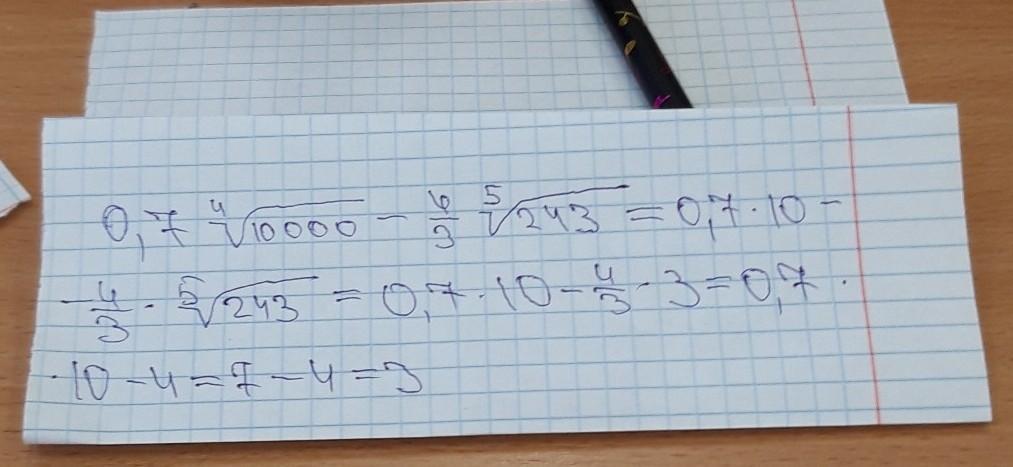 0,7 ⁴√10000 − 4/3 ⁵√243 = 0,7 · 10 −
− 4/3 · ⁵√243 = 0,7 · 10 − 4/3 · 3 = 0,7 ·
· 10 − 4 = 7 − 4 = 3